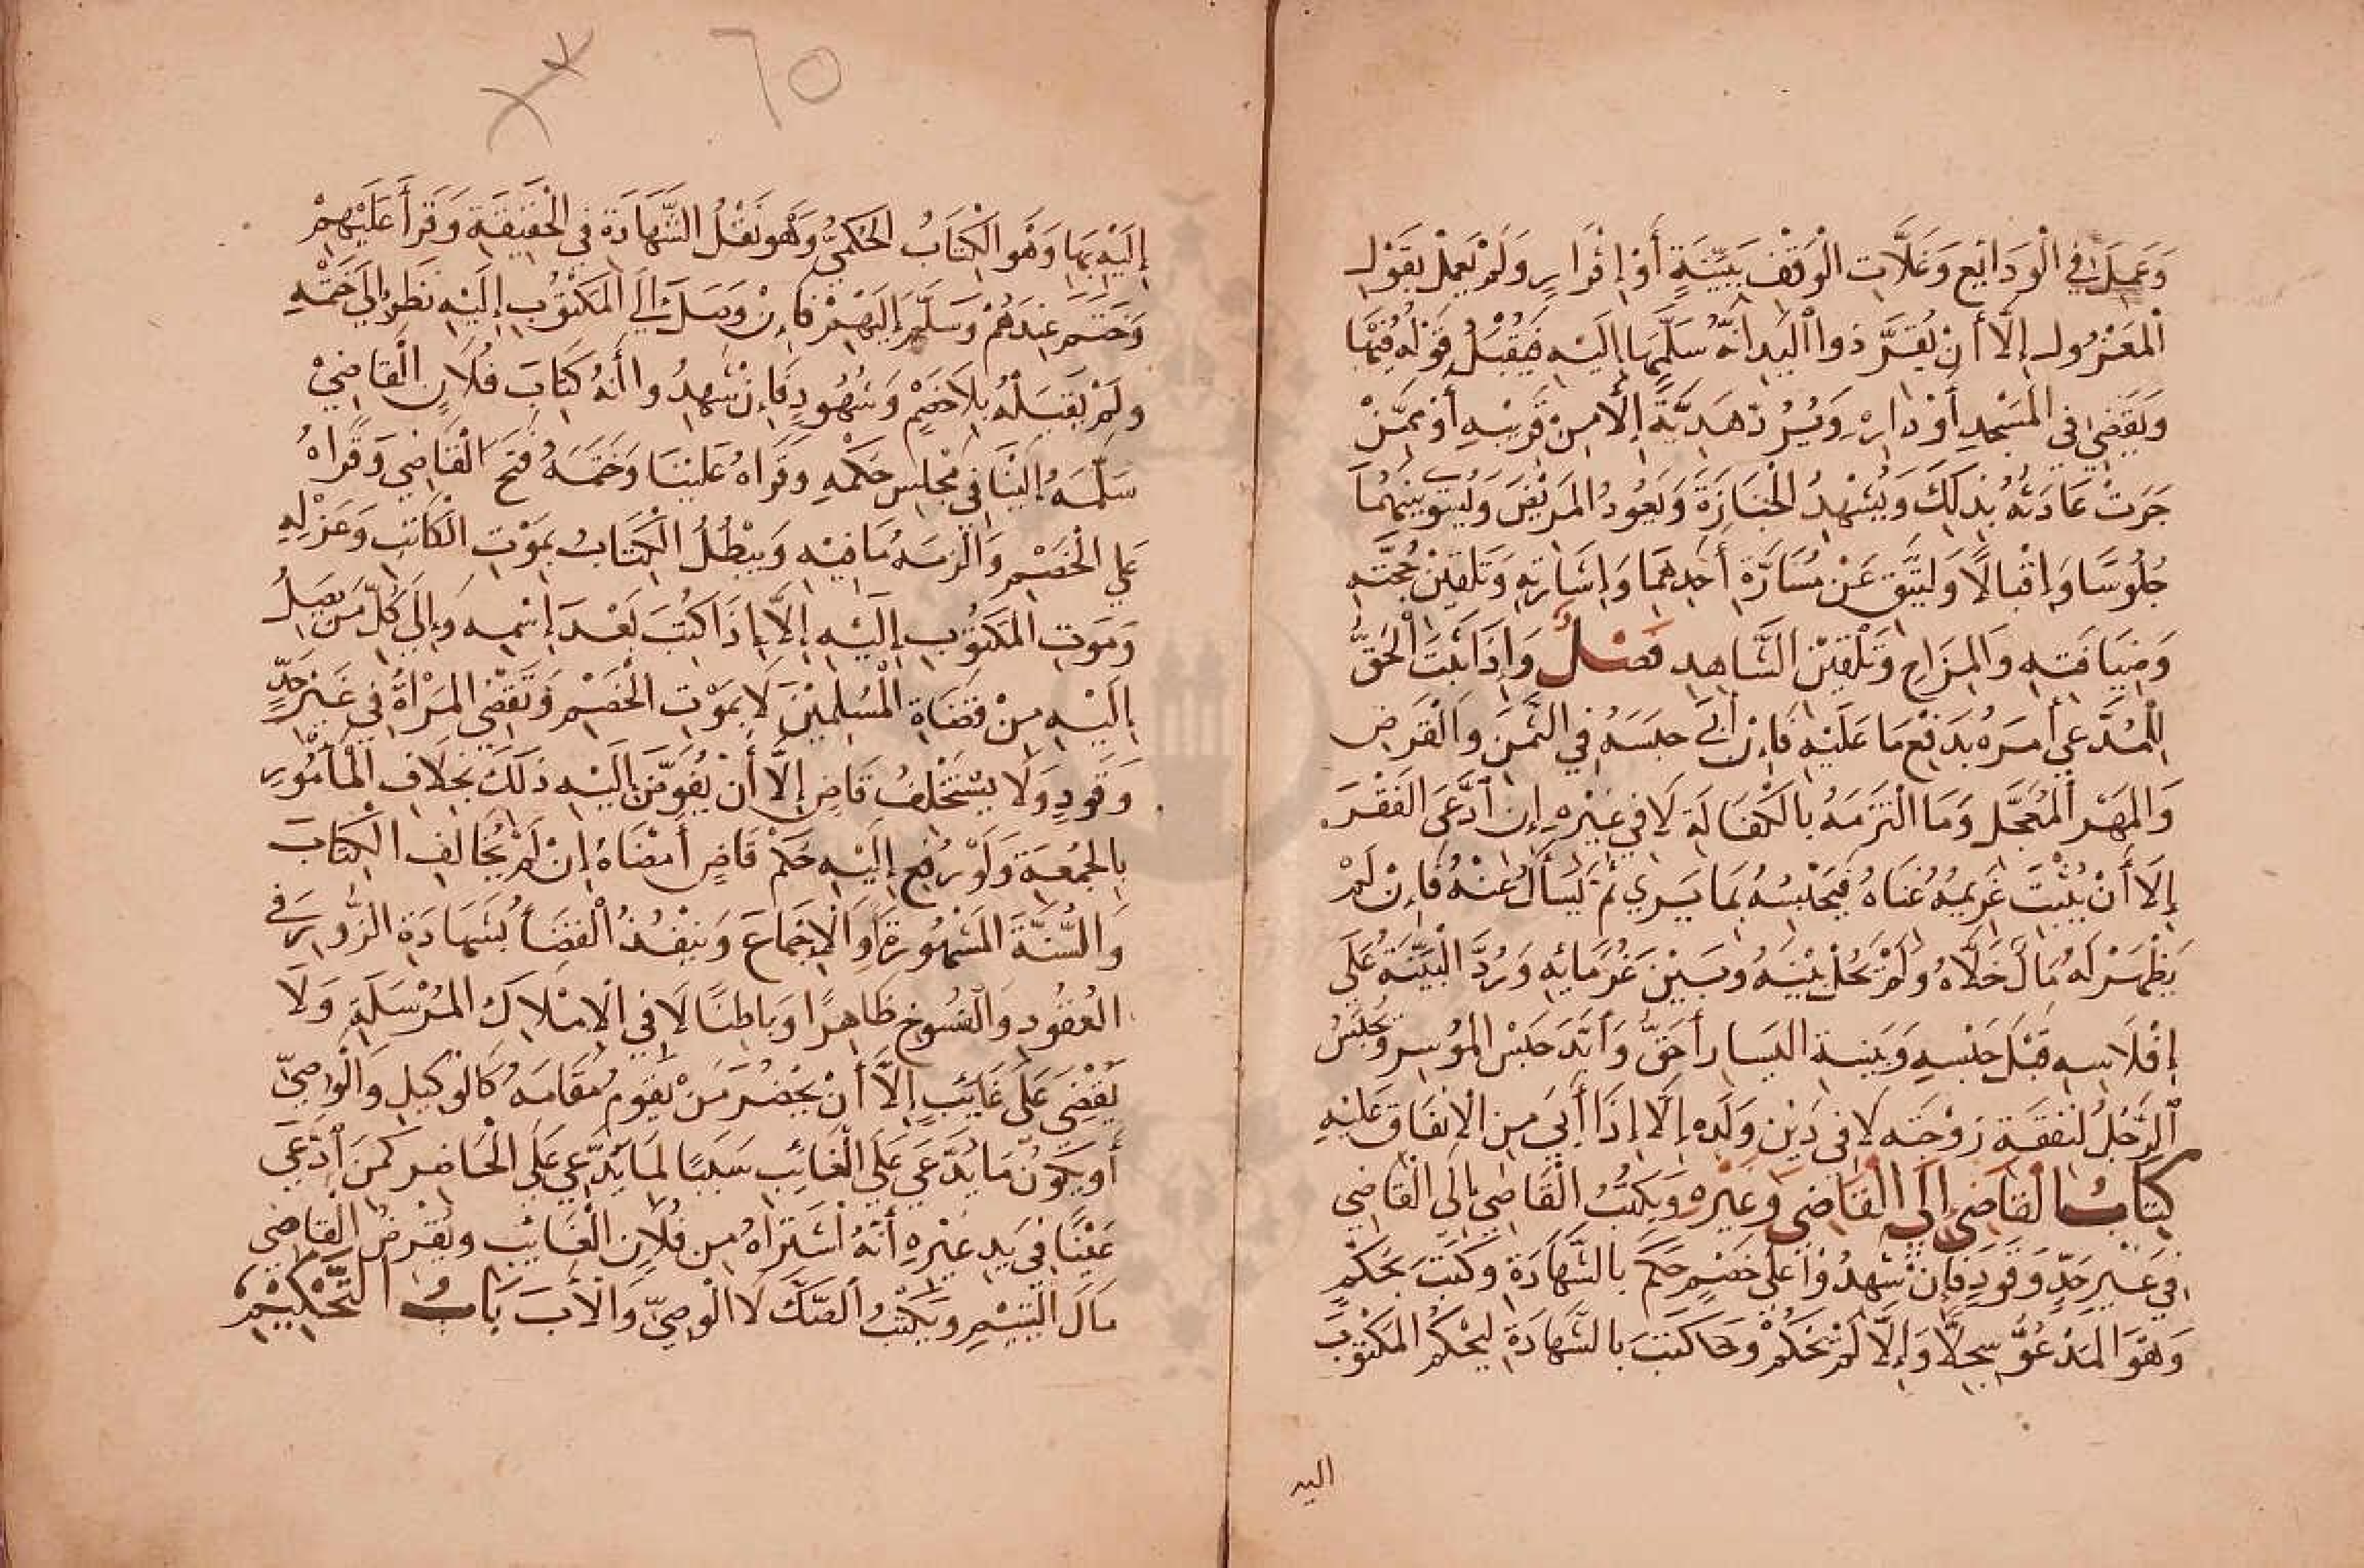 وَعَمِلَ فِي الْوَدَائِعِ وَغَلَّاتِ الْوَقْفِ بِبَيِّنَةٍ أَوْ إِقْرَارٍ وَلَمْ يَعْمَلْ بِقَوْلِ
الْمَعْزُولِ إِلَّا أَنْ يُقِرَّ ذُوا الْيَدِ أَنَّهُ سَلَّمَهَا إِلَيْهِ فَيَقْبَلُ قَوْلَهُ فِيْهَا
وَيَقْضِي فِي الْمَسْجِدِ أَوْ دَارِهِ وَيَرُدُّ هَدِيَّةً إِلَّا مِنْ قَرِيْبِهِ أَوْ مِمَّنْ
جَرَتْ عَادَتُهُ بِذَلِكَ وَيَشْهَدُ الْجَنَازَةَ وَيَعُودُ الْمَرِيْضَ وَلْيُسَوِّ بَيْنَهُمَا
جُلُوسًا وَإِقْبَالًا وَلْيَتَّقِ عَنْ مُسَارَّةِ أَحَدِهِمَا وَإِشَارَتِهِ وَتَلْقِيْنِ حُجَّتِهِ
وَضِيَافَتِهِ وَالْمِزَاحِ وَتَلْقِيْنِ الشَّاهِدِ فَصْلٌ وَإِذَا ثَبَتَ الْحَقُّ
لِلْمُدَّعِي أَمَرَهُ بِدَفْعِ مَا عَلَيْهِ فَإِنْ أَبَى حَبَسَهُ فِي الثَّمَنِ وَالْقَرْضِ
وَالْمَهْرِ الْمُعَجَّلِ وَمَا الْتَزَمَهُ بِالْكَفَالَةِ لَا فِي غَيْرِهِ إِنِ ادَّعَى الْفَقْرَ
إِلَّا أَنْ يُثْبِتَ غَرِيمُهُ غِنَاهُ فَيَحْبِسُهُ بِمَا يَرَى ثُمَّ يَسْأَلُ عَنْهُ فَإِنْ لَمْ
يَظْهَرْ لَهُ مَالٌ خَلَّاهُ وَلَمْ يَحُلْ بَيْنَهُ وَبَيْنَ غُرَمَائِهِ وَرُدَّ الْبَيِّنَةُ عَلَى
إِفْلَاسِهِ قَبْلَ حَبْسِهِ وَبَيِّنَةُ الْيَسَارِ أَحَقُّ وَأَبَّدَ حَبْسَ الْمُوْسِرِ وَيُحْبَسُ
الرَّجُلُ لِنَفَقَةِ زَوْجَتِهِ لَا فِي دَيْنِ وَلَدِهِ إِلَّا إِذَا أَبَى مِنَ الْإِنْفَاقِ عَلَيْهِ
كِتَابُ الْقَاضِي إِلَى الْقَاضِي وَغَيْرِهِ وَيَكْتُبُ الْقَاضِي إِلَى الْقَاضِي
فِي غَيْرِ حَدٍّ وَقَوَدٍ فَإِنْ شَهِدُوْا عَلَى خَصْمٍ حَكَمَ بِالشَّهَادَةِ وَكَتَبَ بِحُكْمٍ
وَهُوَ الْمَدْعُوُّ سِجِلًّا وَإِلَّا لَمْ يَحْكُمْ وَكَتَبَ بِالشَّهَادَةِ لِيَحْكُمَ الْمَكْتُوْبُ
اليه
٦٥
إِلَيْهِ بِهَا وَهُوَ الْكِتَابُ الْحُكْمِيُّ وَهُوَ نَقْلُ الشَّهَادَةِ فِي الْحَقِيْقَةِ وَقَرَأَ عَلَيْهِمْ
وَخَتَمَ عِنْدَهُمْ وَسَلَّمَ إِلَيْهِمْ فَإِنْ وَصَلَ إِلَى الْمَكْتُوْبِ إِلَيْهِ نَظَرَ إِلَى خَتْمِهِ
وَلَمْ يَقْبَلْهُ بِلَا خَصْمٍ وَشُهُودٍ فَإِنْ شَهِدُوا أَنَّهُ كِتَابُ فُلَانٍ الْقَاضِيْ
سَلَّمَهُ إِلَيْنَا فِي مَجْلِسِ حُكْمِهِ وَقَرَاهُ عَلَيْنَا وَخَتَمَهُ فَتَحَ الْقَاضِي وَقَرَاهُ
عَلَى الْخَصْمِ وَأَلْزَمَهُ مَا فِيْهِ وَيَبْطُلُ الْكِتَابُ بِمَوْتِ الْكَاتِبِ وَعَزْلِهِ
وَمَوْتِ الْمَكْتُوْبِ إِلَيْهِ إِلَّا إِذَا كَتَبَ بَعْدَ إِسْمِهِ وَإِلَى كُلِّ مَنْ يَصِلُ
إِلَيْهِ مِنْ قُضَاةِ الْمُسْلِمِيْنَ لَا بِمَوْتِ الْخَصْمِ وَتَقْضِي الْمَرْأَةُ فِي غَيْرِ حَدٍّ
وَقَوَدٍ وَلَا يَسْتَخْلِفُ قَاضٍ إِلَّا أَنْ يُفَوَّضَ إِلَيْهِ ذَلِكَ بِخِلَافِ الْمَأْمُوْرِ
بِالْجُمُعَةِ وَلَوْ رُفِعَ إِلَيْهِ حُكْمُ قَاضٍ أَمْضَاهُ إِنْ لَمْ يُخَالِفِ الْكِتَابَ
وَالسُّنَّةَ الْمَشْهُوْرَةَ أَوِ الْإِجْمَاعَ وَيَنْفُذُ الْقَضَاءُ بِشَهَادَةِ الزُّورِ فِي
الْعُقُودِ وَالْفُسُوخِ ظَاهِرًا وَبَاطِنًا لَا فِي الْأَمْلَاكِ الْمُرْسَلَةِ وَلَا
يُقْضَى عَلَى غَائِبٍ إِلَّا أَنْ يَحْضُرَ مَنْ يَقُوْمُ مَقَامَهُ كَالْوَكِيلِ وَالْوَصِيِّ
أَوْ يَكُوْنُ مَا يَدَّعِي عَلَى الْغَائِبِ سَبَبًا لِمَا يَدَّعِي عَلَى الْحَاضِرِ كَمَنِ ادَّعَى
عَيْنًا فِي يَدِ غَيْرِهِ أَنَّهُ اشْتَرَاهُ مِنْ فُلَانٍ الْغَائِبِ وَيُقْرِضُ الْقَاضِي
مَالَ الْيَتِيْمِ وَيَكْتُبُ الصَّكَّ لَا الْوَصِيُّ وَالْأَبُ بَابُ التَّحْكِيْمِ